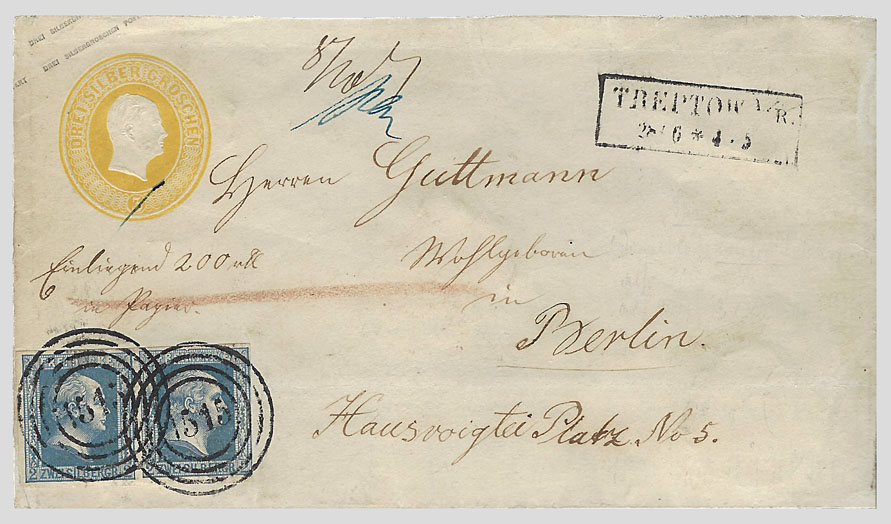 DREI SILBERGROSCHEN POST
DREI SILBER GROSCHEN
3
TREPTOW A/R.
28 6 * 4-5
Herren Guttmann
Wohlgeboren
in
Berlin.
Hausvoigtei Platz No 5.
Einliegend 200 rtl
in Papier.
1515
1515
2 ZWEI SILBERGR. 2
ZWEI SILBERGR.